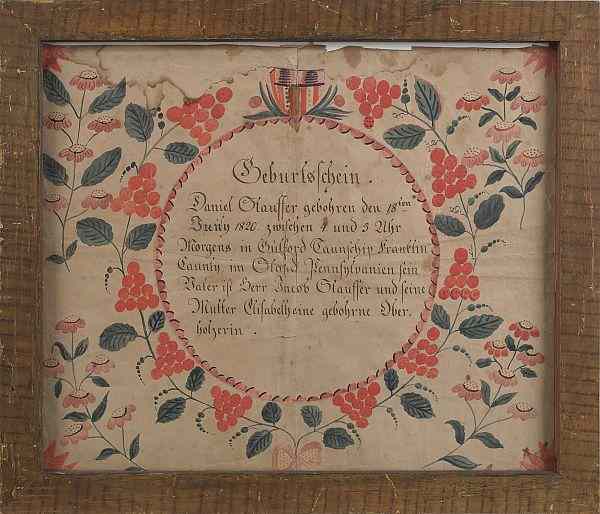 Geburtsschein.
Daniel Stauffer gebohren den 18ten
Juny 1820 zwischen 4 und 5 Uhr
Morgens in Guilford Taunschip Franklin
Caunty im Staad Pennsylvanien sein
Vater ist Herr Jacob Stauffer und seine
Mutter Elisabeth eine gebohrne Ober.
holzerin.